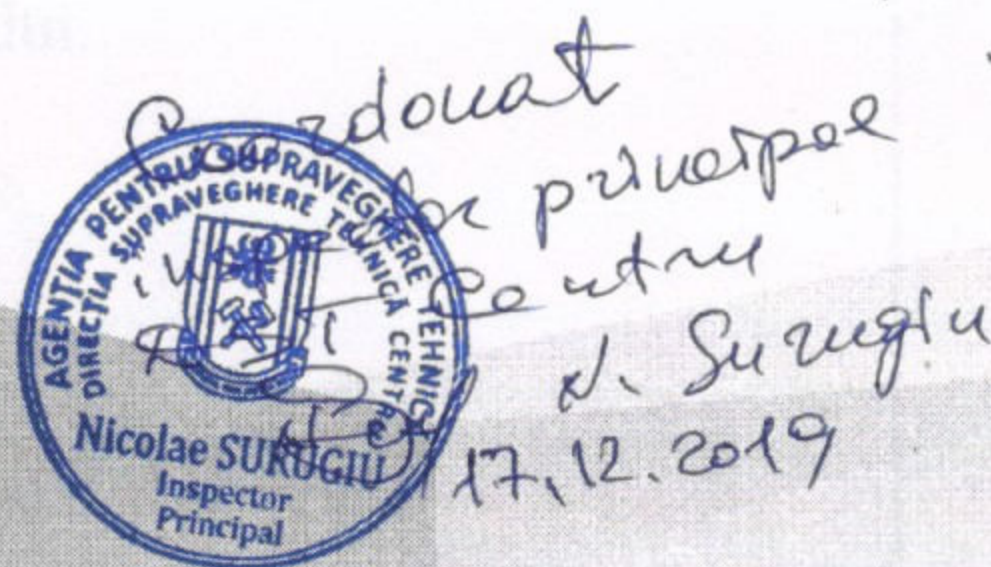 Coordonat
inspector principal
Centru
N. Surugiu
17.12.2019
AGENȚIA PENTRU SUPRAVEGHERE TEHNICĂ
DIRECȚIA SUPRAVEGHERE TEHNICĂ CENTRU
Nicolae SURUGIU
Inspector
Principal